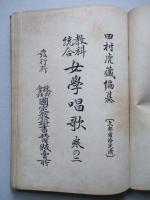 田村虎藏編纂
教科
統合
女學唱歌 巻の二
發行所
株式
會社
國定教科書共同販賣所